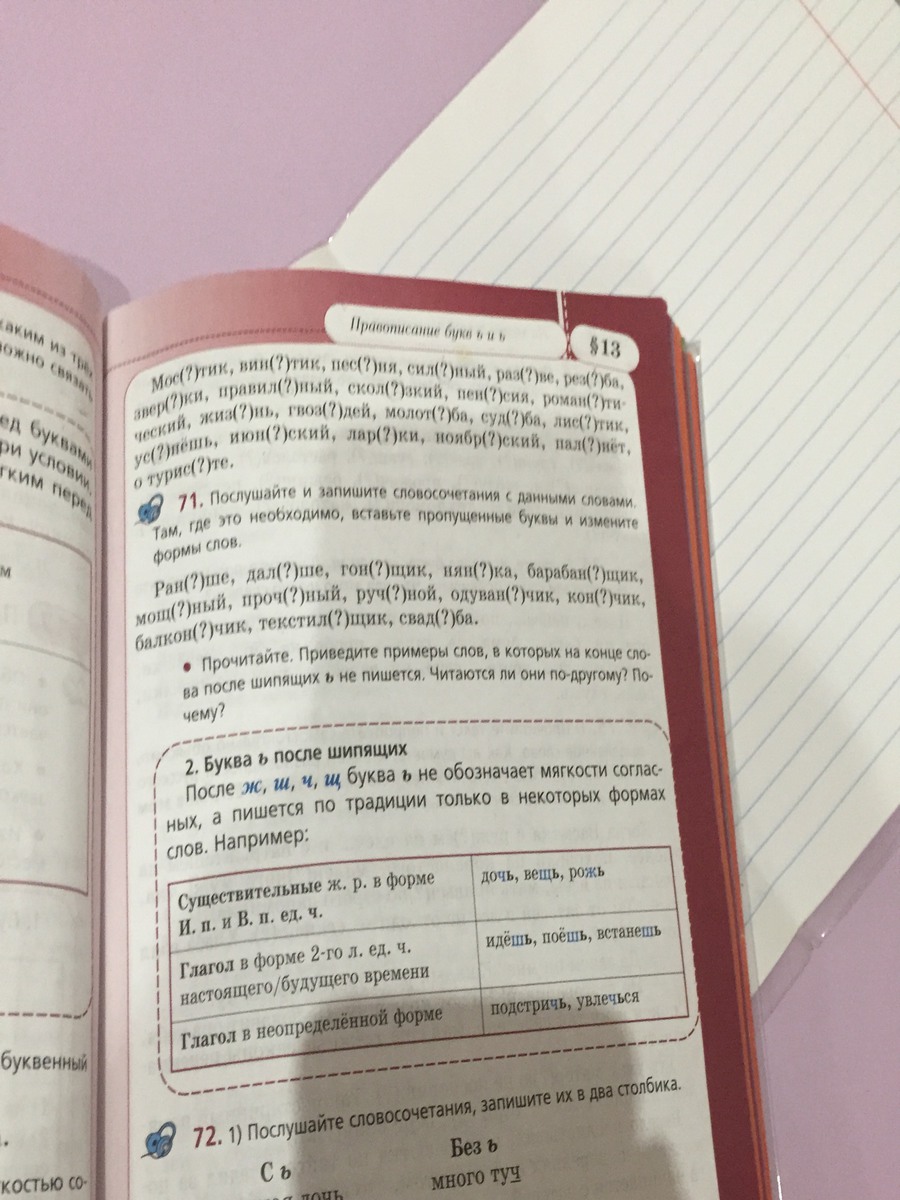 каким из трё
можно связать
ед буквами
ри услови
гким перед
м
буквенный
костью со-
Правописание букв ъ и ь
§13
Мос(?)тик, вин(?)тик, пес(?)ня, сил(?)ный, раз(?)ве, рез(?)ба,
звер(?)ки, правил(?)ный, скол(?)зкий, пен(?)сия, роман(?)ти-
ческий, жиз(?)нь, гвоз(?)дей, молот(?)ба, суд(?)ба, лис(?)тик,
ус(?)нёшь, июн(?)ский, лар(?)ки, ноябр(?)ский, пал(?)нёт,
о турис(?)те.
71. Послушайте и запишите словосочетания с данными словами.
Там, где это необходимо, вставьте пропущенные буквы и измените
формы слов.
Ран(?)ше, дал(?)ше, гон(?)щик, нян(?)ка, барабан(?)щик,
мощ(?)ный, проч(?)ный, руч(?)ной, одуван(?)чик, кон(?)чик,
балкон(?)чик, текстил(?)щик, свад(?)ба.
• Прочитайте. Приведите примеры слов, в которых на конце сло-
ва после шипящих ь не пишется. Читаются ли они по-другому? По-
чему?
2. Буква ь после шипящих
После ж, ш, ч, щ буква ь не обозначает мягкости соглас-
ных, а пишется по традиции только в некоторых формах
слов. Например:
Существительные ж. р. в форме
И. п. и В. п. ед. ч.
дочь, вещь, рожь
Глагол в форме 2-го л. ед. ч.
настоящего/будущего времени
идёшь, поёшь, встанешь
Глагол в неопределённой форме
подстричь, увлечься
72. 1) Послушайте словосочетания, запишите их в два столбика.
С ь
Без ь
дочь
много туч